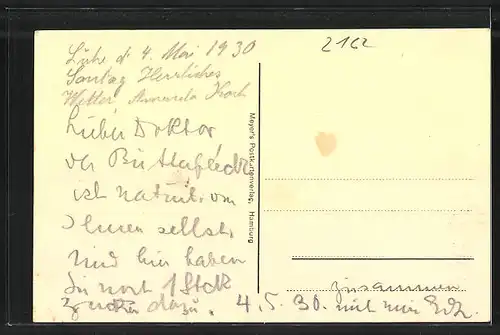 Lühe d. 4. Mai 1930
Sontag Herrliches
Wetter, Amanda Koch
2162
Lieber Doktor
der Butterfleck
ist natürl. von
Ihnen selbst,
und hier haben
Sie noch 1 Stck
Zucker dazu.
4.5.30. mit mir
zusammen
Meyer's Postkartenverlag, Hamburg